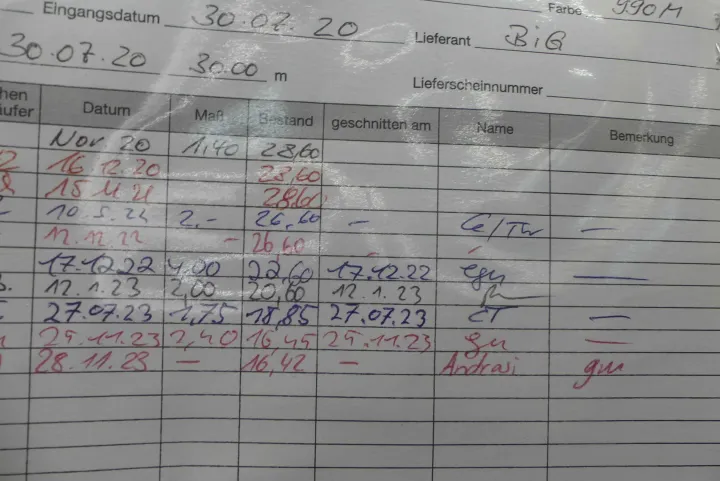 Eingangsdatum 30.07.20 Farbe 990M
30.07.20 30.00 m Lieferant BiG
Lieferscheinnummer
hen
äufer Datum Maß Bestand geschnitten am Name Bemerkung
Nov 20 1,40 28,60
16.12.20 28,60
15.11.21 28,60
10.5.23 2,- 26,60 –
12.12.22 – 26,60
17.12.22 4,00 22,60 17.12.22 —
12.1.23 2,00 20,60 12.1.23
27.07.23 1,75 18,85 27.07.23 ET —
25.11.23 2,40 16,45 25.11.23 gu —
28.11.23 — 16,42 — Andrasi gu